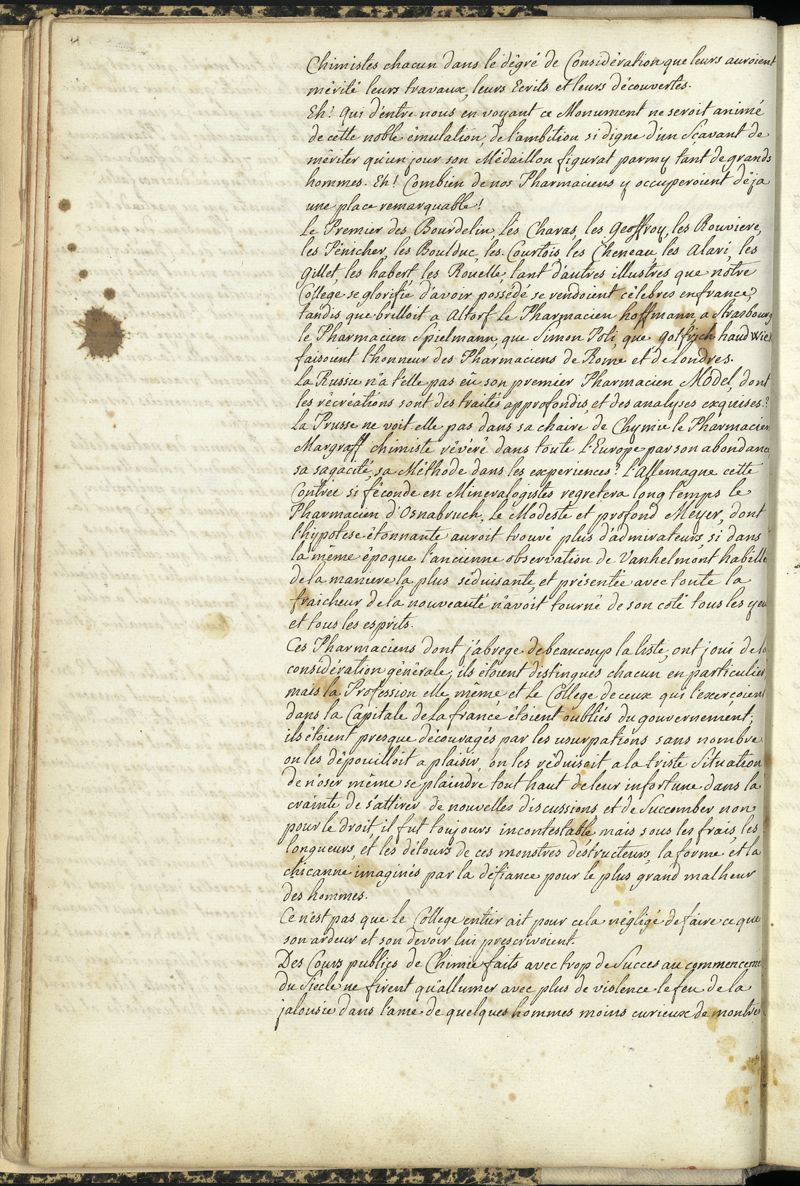 Chimistes chacun dans le dégré de Considération que leurs auroient
mérité leurs travaux, leurs Ecrits et leurs découvertes.
Eh! Qui d'entre nous en voyant ce Monument ne seroit animé
de cette noble émulation, de l'ambition si digne d'un Sçavant de
mériter qu'un jour son Médaillon figurat parmy tant de grands
hommes. Eh! Combien de nos Pharmaciens y occuperoient déja
une place remarquable!
Le Premier des Bourdelin, les Charas, les Geoffroy, les Rouviere,
les Pénicher, les Boulduc, les Courtois, les Cheneau les Alari, les
Gillet, les habert, les Rouelle, tant d'autres illustres que nôtre
Collége se glorifie d'avoir possédé se rendoient célebres en france,
tandis que brilloit a Altorf le Pharmacien hoffmann, a Strasbourg
le Pharmacien Spielmann, que Simon Poli, que Golfrich haud Wic
faisoient l'honneur des Pharmaciens de Rome et de Londres.
La Russie n'a t'elle pas eû son premier Pharmacien Model, dont
les récréations sont des traités approfondis et des analyses exquises?
La Prusse ne voit elle pas dans sa chaire de Chymie le Pharmacien
Margraff chimiste révéré dans toute l'Europe par son abondance
sa sagacité, sa Méthode dans les experiences? l'Allemagne cette
Contrée si féconde en Mineralogistes regretera long temps le
Pharmacien d'Osnabruch, le Modeste et profond Meyer, dont
l'hypotese étonnante auroit trouvé plus d'admirateurs, si dans
la même époque l'ancienne observation de Vanhelmont habillé
de la maniere la plus séduisante, et présentée avec toute la
fraicheur de la nouveauté n'avoit tourné de son coté tous les yeu
et tous les esprits.
Ces Pharmaciens dont j'abrege de beaucoup la liste, ont joui de la
considération générale, ils étoient distingues chacun en particulier
mais la Profession elle même et le Collége de ceux qui l'exercoient
dans la Capitale de la france étoient oubliés du gouvernement;
ils étoient presque découragés par les usurpations sans nombre
on les dépouilloit a plaisir, on les réduisoit a la triste Situation
de n'oser même se plaindre tout haut de leur infortune dans la
crainte de s'attirer de nouvelles discussions et de Succomber non
pour le droit, il fut toujours incontestable, mais sous les frais, les
longueurs, et les détours de ces monstres destructeurs, la forme et la
chicanne imaginés par la défiance pour le plus grand malheur
des hommes.
Ce n'est pas que le Collége entier ait pour cela négligé de faire ce que
son ardeur et son devoir lui prescrivoient.
Des Cours publics de Chimie faits avec trop de Succes au commencem
du Siecle ne firent qu'allumer avec plus de violence le feu de la
jalousie dans l'ame de quelques hommes moins curieux de montre